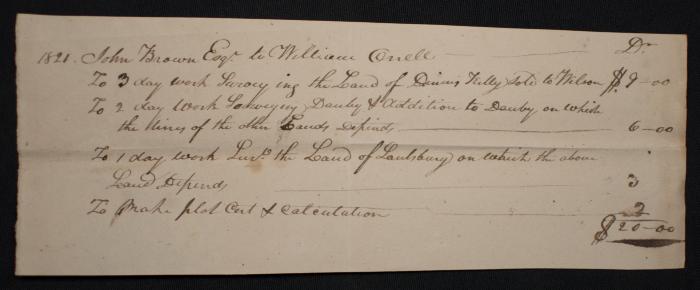 1821. John Brown Esqr. to William Orrell Dr
To 3 day work Surveying the Land of Dinnis Kelly Sold to Wilson $9-00
To 2 day Work Surveying Danby & Addition to Danby on which
the lines of the other Lands Depends 6-00
To 1 day work Surv.g the Land of on which the above
Land Depends 3
To Make plot Cert & Calculation 2
$20-00